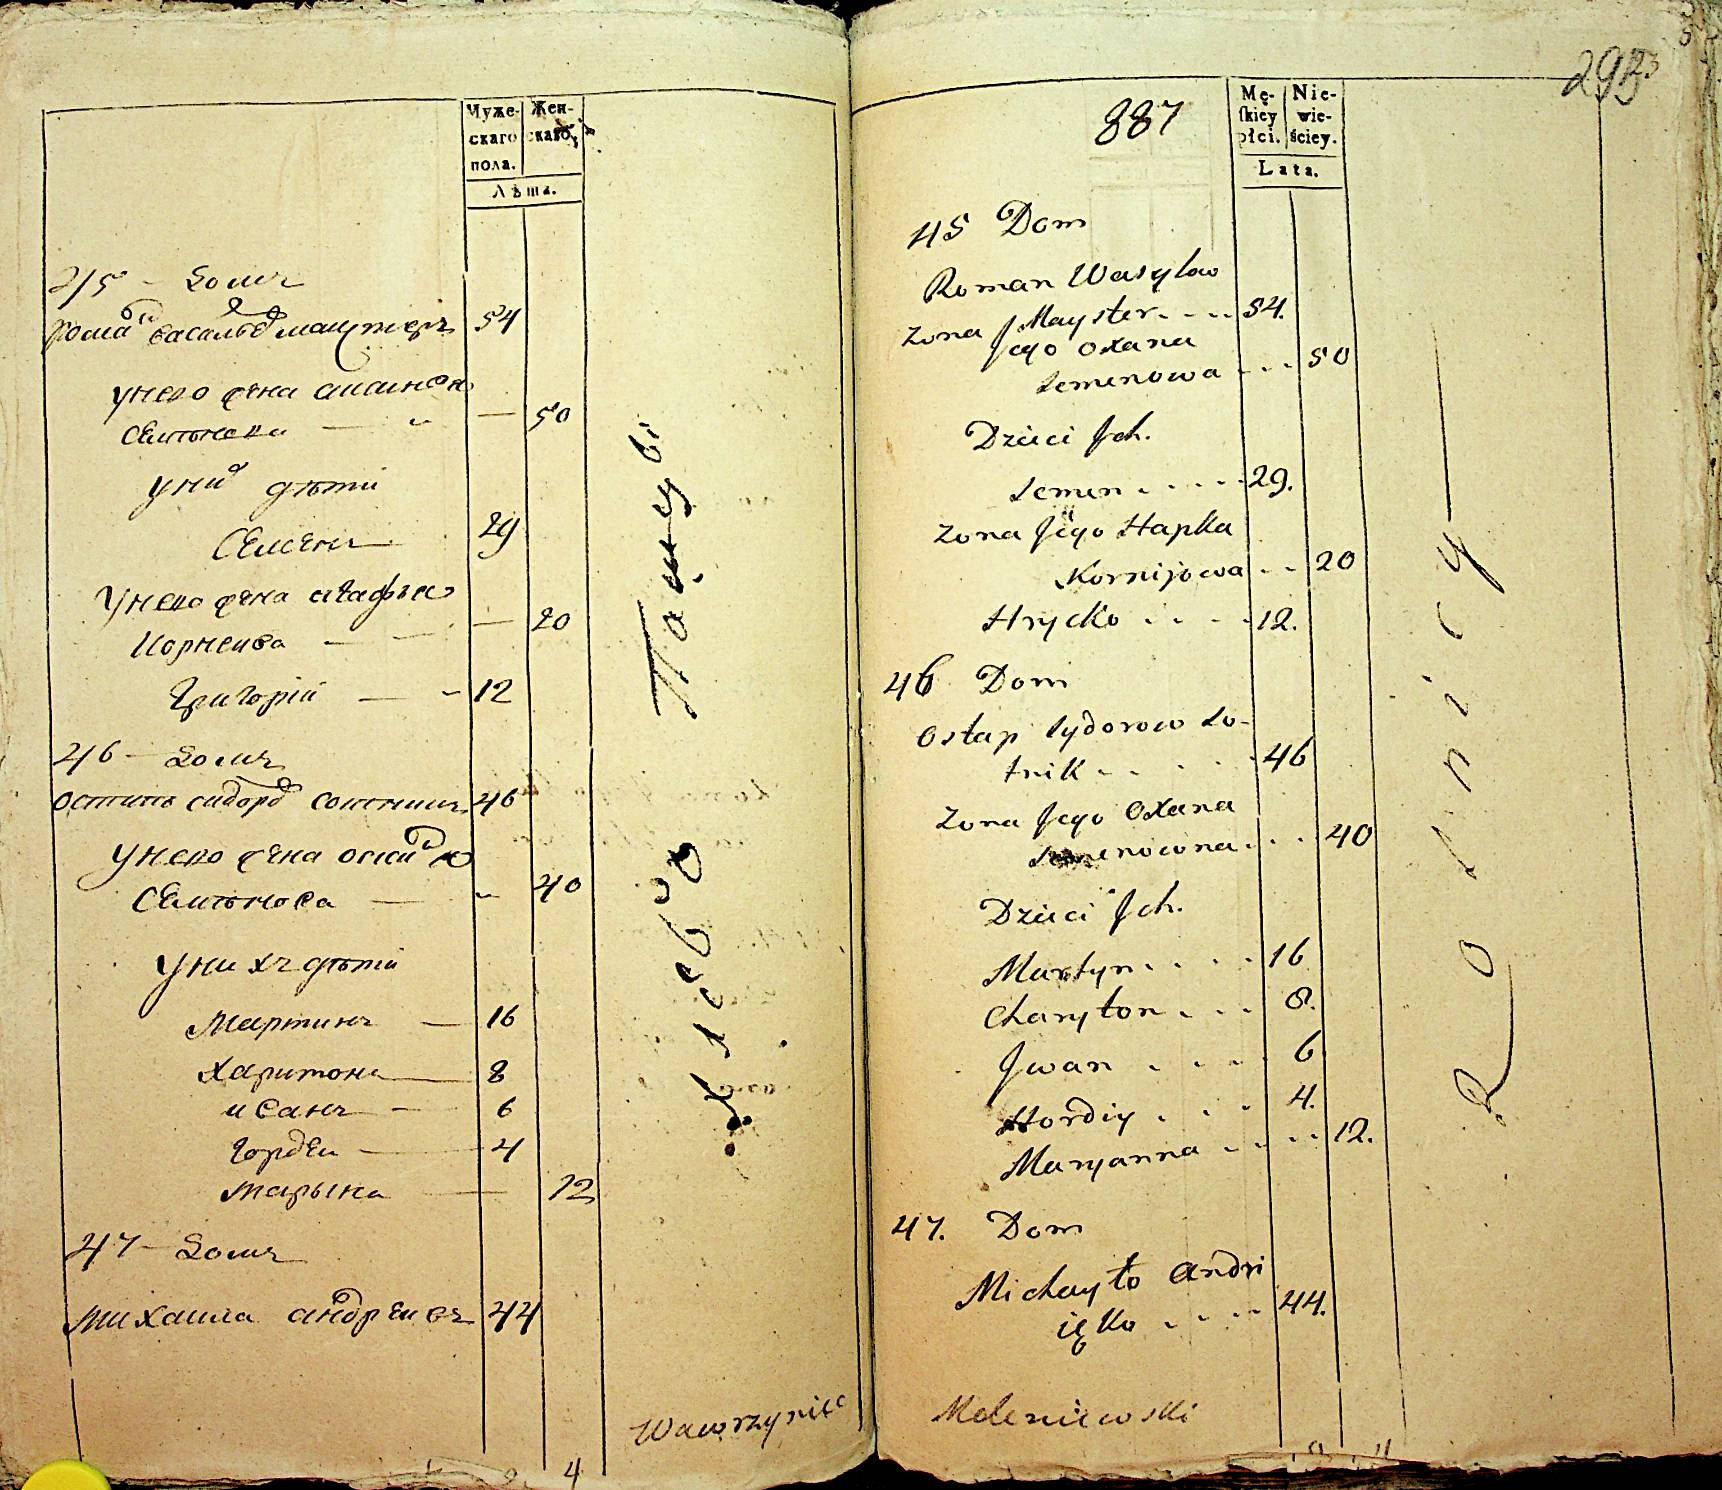 Муже-
скаго
пола.
Жен-
скаго
Лѣта.
45 - Домъ
Романъ васильевъ маистеръ 54
у него жена аксинья
семѣнова — 50
у нихъ дѣти
Семенъ 29
у него жена агафья
Корнеива — 20
Григорій — 12
46 - Домъ
остапъ сидоровъ сотникъ 46
у него жена оксинья
семѣнова — 40
у нихъ дѣти
Мартинъ — 16
харитонъ — 8
иванъ — 6
Гордеи — 4
марьяна — 12
47 - Домъ
михаила андреивъ 44
Пащуві
Хлѣбо
Wawrzyniec
4
293
887
Mę-
skiey
płci.
Nie-
wie-
ściey.
Lata.
45 Dom
Roman Wasylow
Mayster 54.
Zona Jego Oxana
Semenowa 50
Dzieci Jch.
Semen 29.
Zona Jego Hapka
Kornijowa 20
Hrycko 12.
46 Dom
Ostap Sydorow So-
tnik 46
Zona Jego Oxana
Semenowna 40
Dzieci Jch.
Martyn 16
Charyton 8.
Jwan 6
Hordiy 4.
Maryanna 12.
47. Dom
Michayło Andri
ięko 44.
Rolnicy
Meleniewski